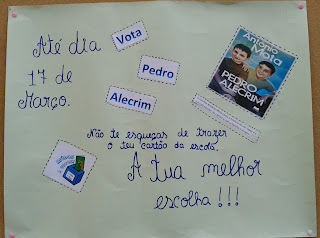 Até dia
17 de
Março.
Vota
Pedro
Alecrim
António
Mota
PEDRO
ALECRIM
Não te esqueças de trazer
o teu cartão da escola.
A tua melhor
escolha!!!